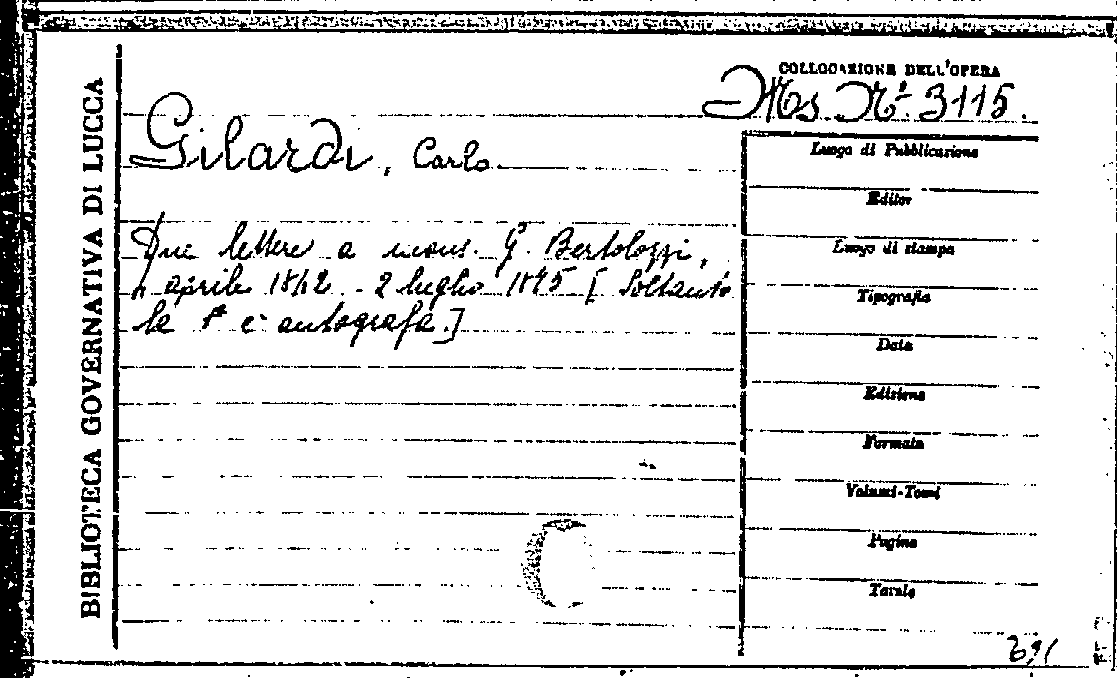 BIBLIOTECA GOVERNATIVA DI LUCCA
COLLOCAZIONE DELL'OPERA
Ms. Nº. 3115.
Gilardi, Carlo.
Due lettere a mons. G. Bertolozzi,
aprile 1842 - 2 luglio 1845 [Soltanto
la 1ª è autografa.]
Luogo di Pubblicazione
Editor
Luogo di stampa
Tipografia
Data
Edizione
Formato
Volumi-Tomi
Pagine
Tavole